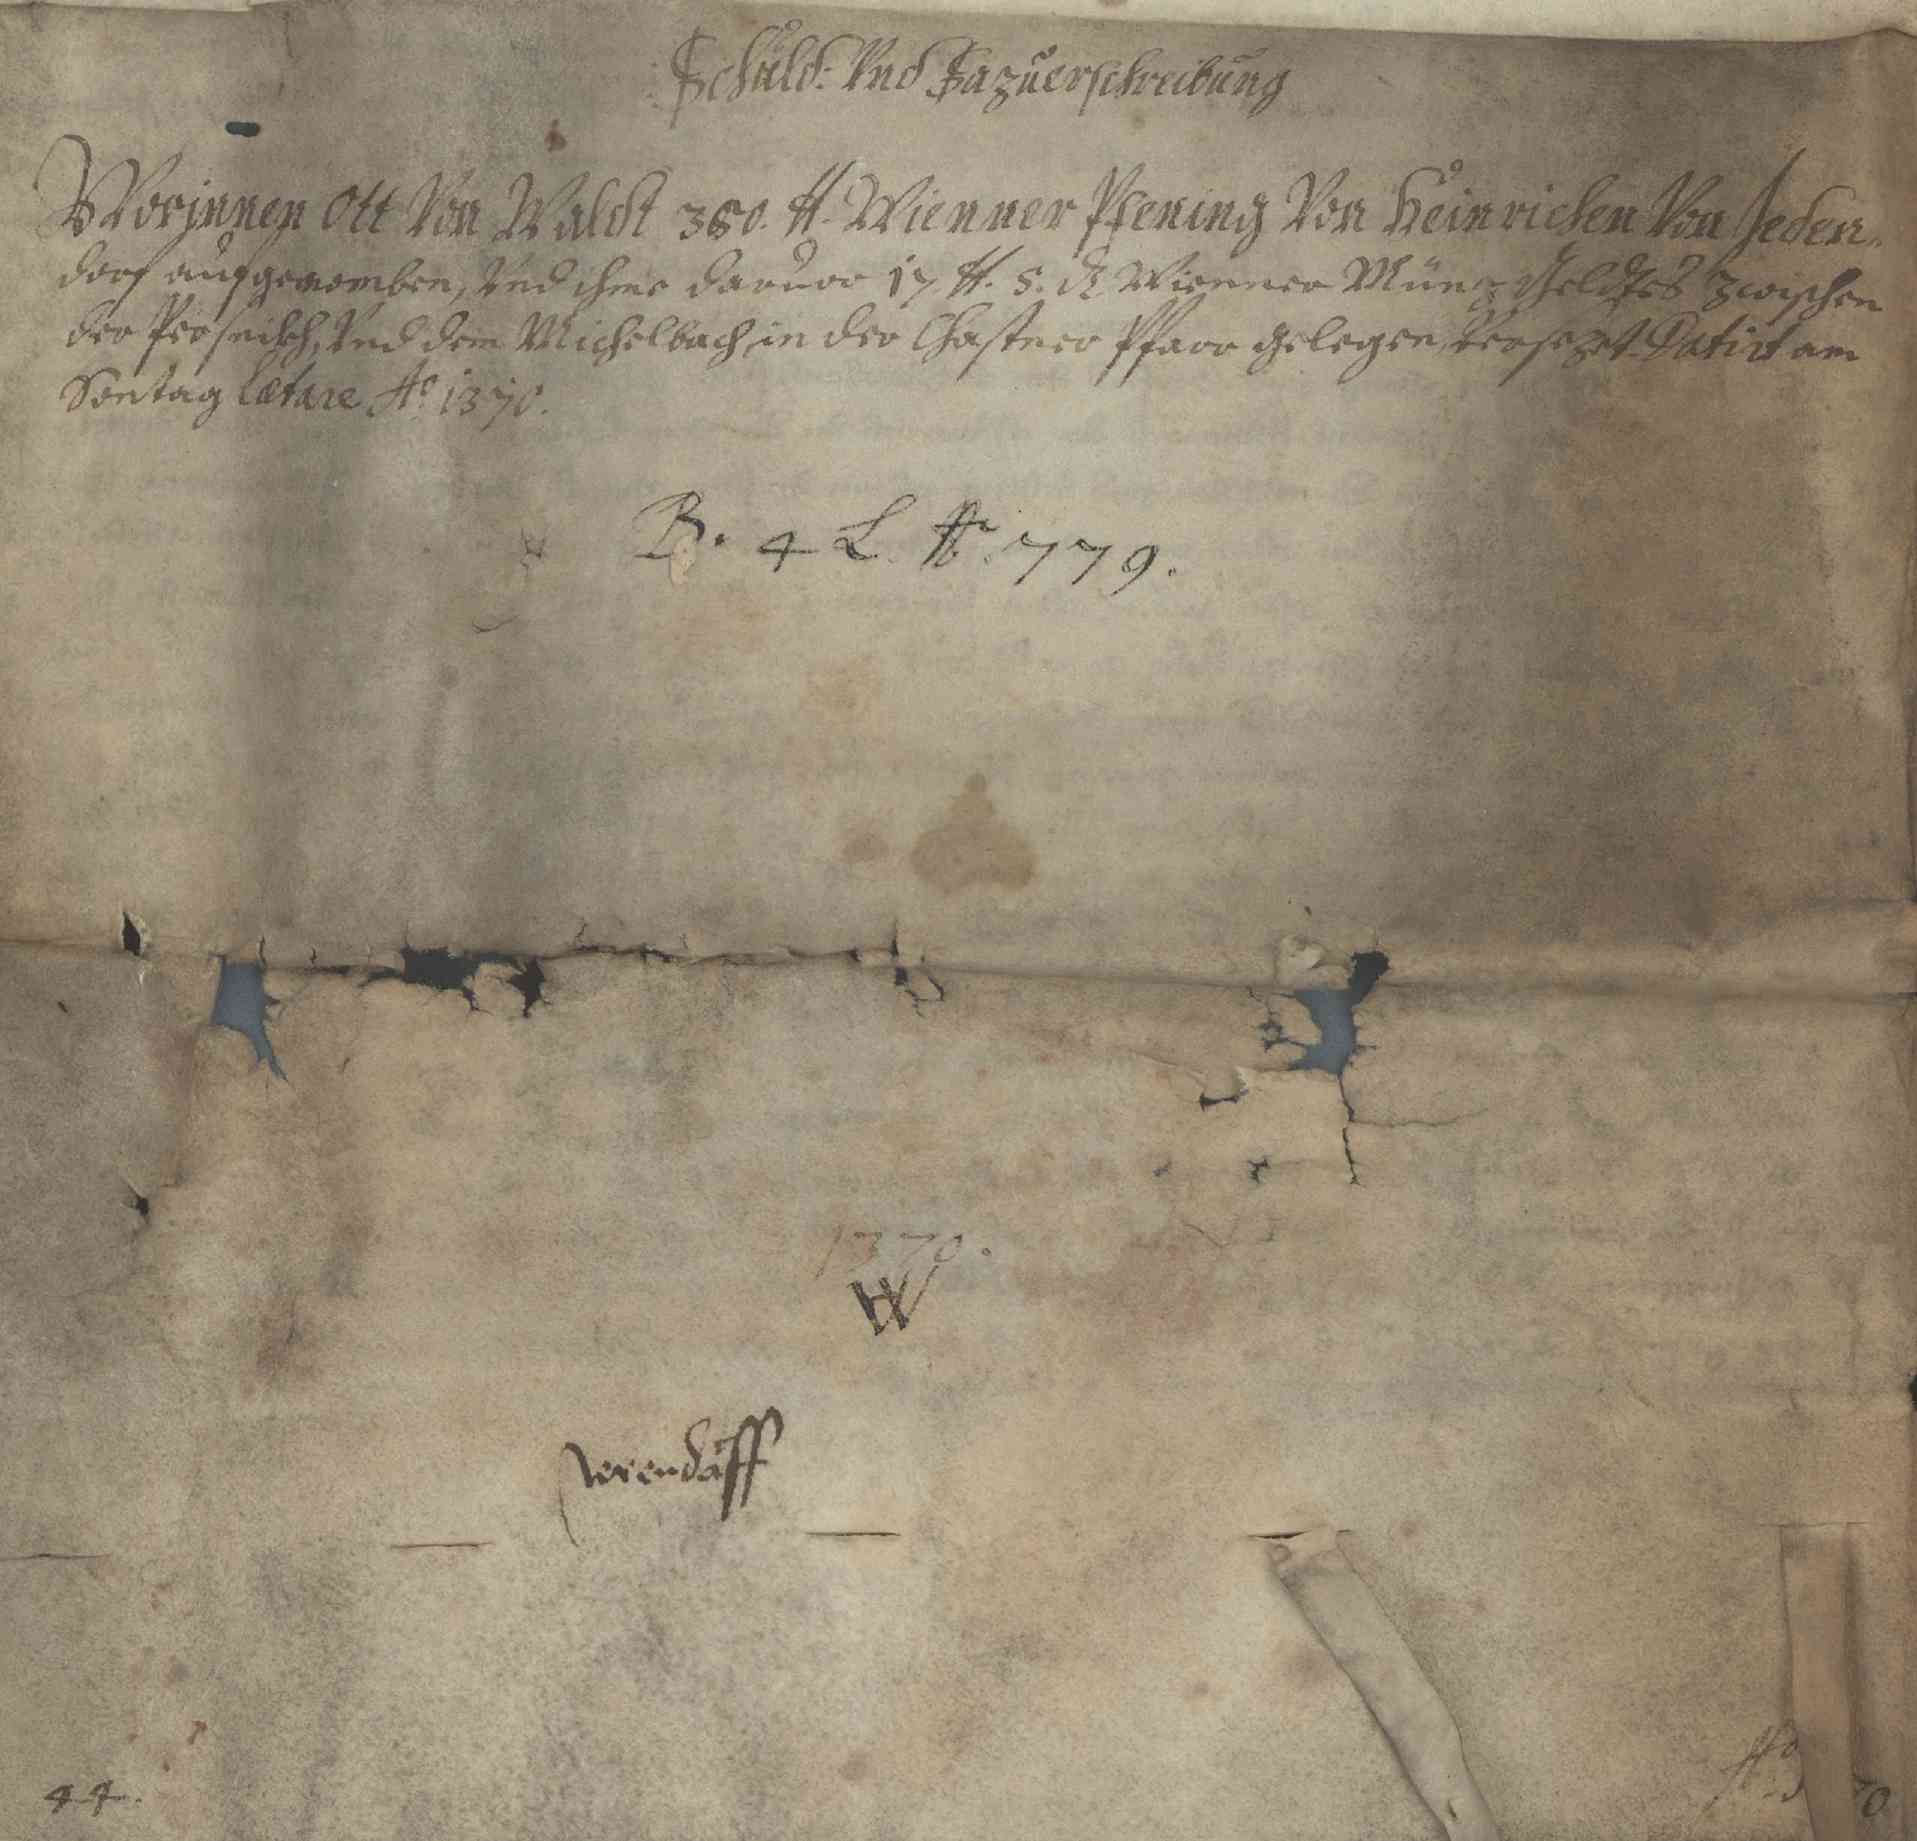 Schuld: Vnd Sazuerschreibung
Worjnnen Ott Von Waldt 380. ℔. Wienner Pfening Von Heinrichen Von Jeden-
dorf aufgenomben, Vnd ihme daruor 17. ℔. 5. ₰ Wienner Münz Geldtes zwischen
der Persnikh, Vnd dem Michelbach, in der Chastner Pfarr gelegen, Versezt. Datirt am
Sontag Lætare Aº 1370.
B. 4 L. N. 779.
1370.
W
44.